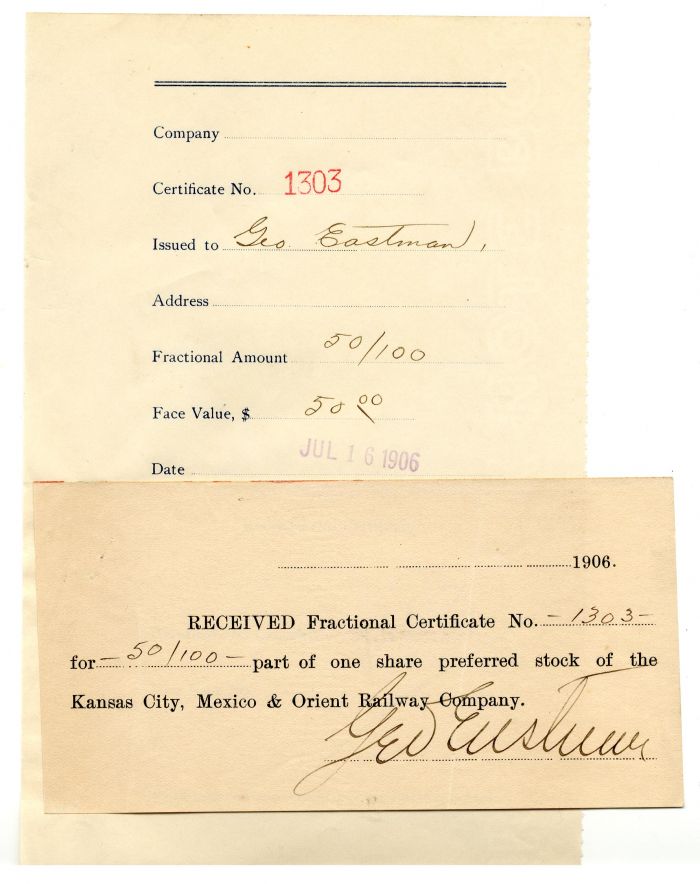 Company
Certificate No. 1303
Issued to Geo. Eastman,
Address
Fractional Amount 50/100
Face Value, $ 50 00
Date JUL 16 1906
1906.
RECEIVED Fractional Certificate No. - 1303 -
for - 50/100 - part of one share preferred stock of the
Kansas City, Mexico & Orient Railway Company.
Geo Eastman